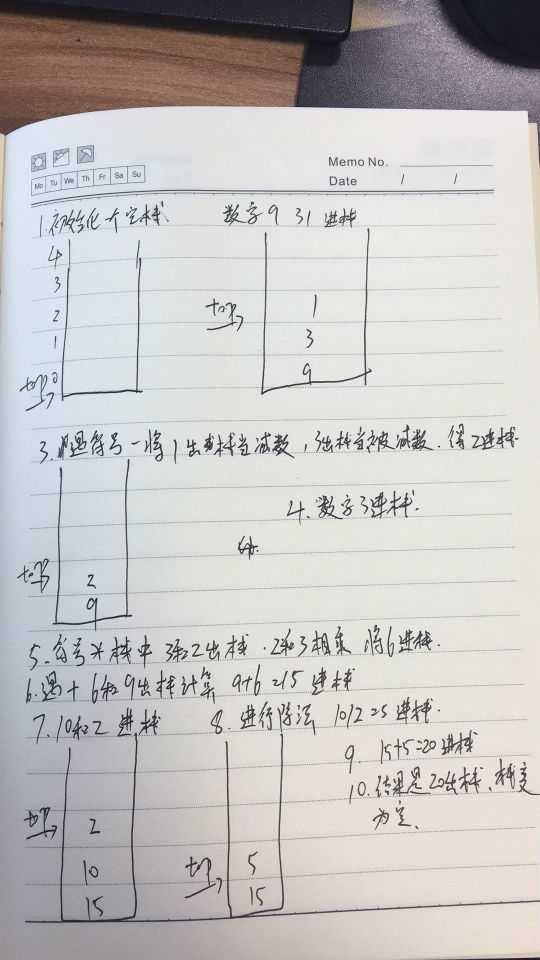 Memo No.
Mo Tu We Th Fr Sa Su
Date / /
1.初始化一个空栈 数字9 3 1 进栈
4
3
2
1
0
top
top
1
3
9
3.遇符号-将1出栈当减数,3出栈当被减数.得2进栈
top
2
9
4.数字3进栈.
5.符号*栈中 3和2出栈.2和3相乘 将6进栈.
6.遇+ 6和9出栈计算 9+6=15 进栈
7.10和2 进栈 8.进行除法 10/2=5 进栈.
9. 15+5=20进栈
10.结果是20出栈、栈变
为空、
top
2
10
15
top
5
15